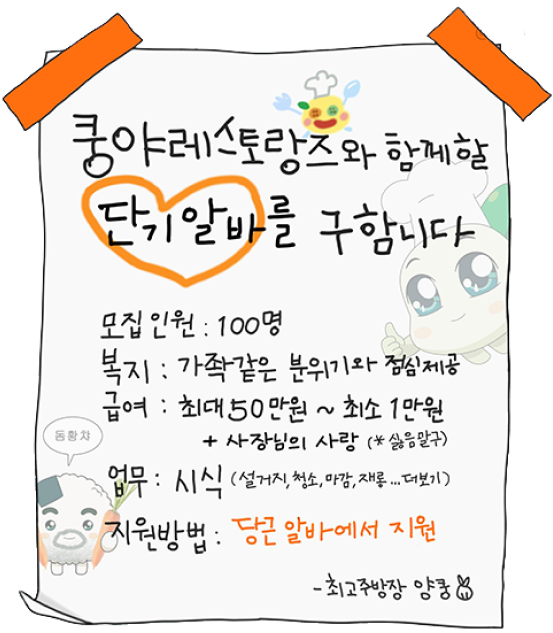 쿵야레스토랑즈와 함께할
단기알바를 구함니다
모집인원 : 100명
복지 : 가좍같은 분위기와 점심제공
급여 : 최대50만원 ~ 최소1만원
+ 사장님의 사랑 (*싫음말구)
동황챠
업무 : 시식 (설거지,청소,마감,재롱...더보기)
지원방법 : 당근알바에서 지원
-최고주방장 양쿵